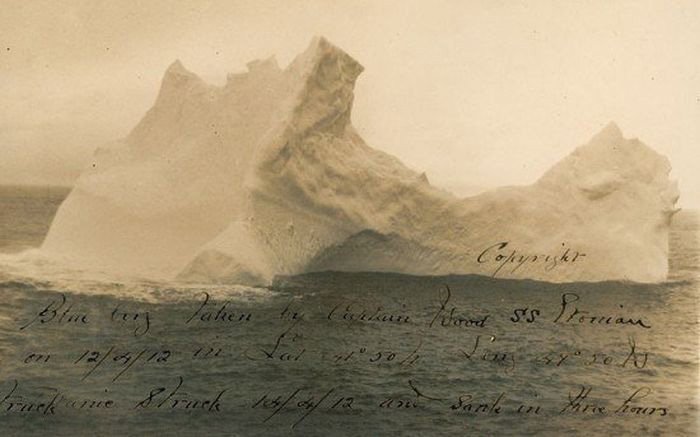 Copyright
Blue berg Taken by Captain Wood SS Etonian
on 12/4/12 in Lat 41°50 N Long W
Struck 14/4/12 and Sank in three hours